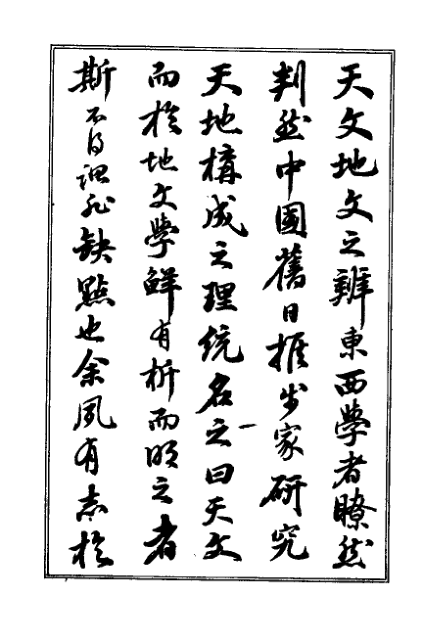 天文地文之辨東西學者瞭然
判然中國舊日推步家研究
天地構成之理統名之曰天文
而於地文學鮮有析而明之者
斯不得謂非缺點也余夙有志於